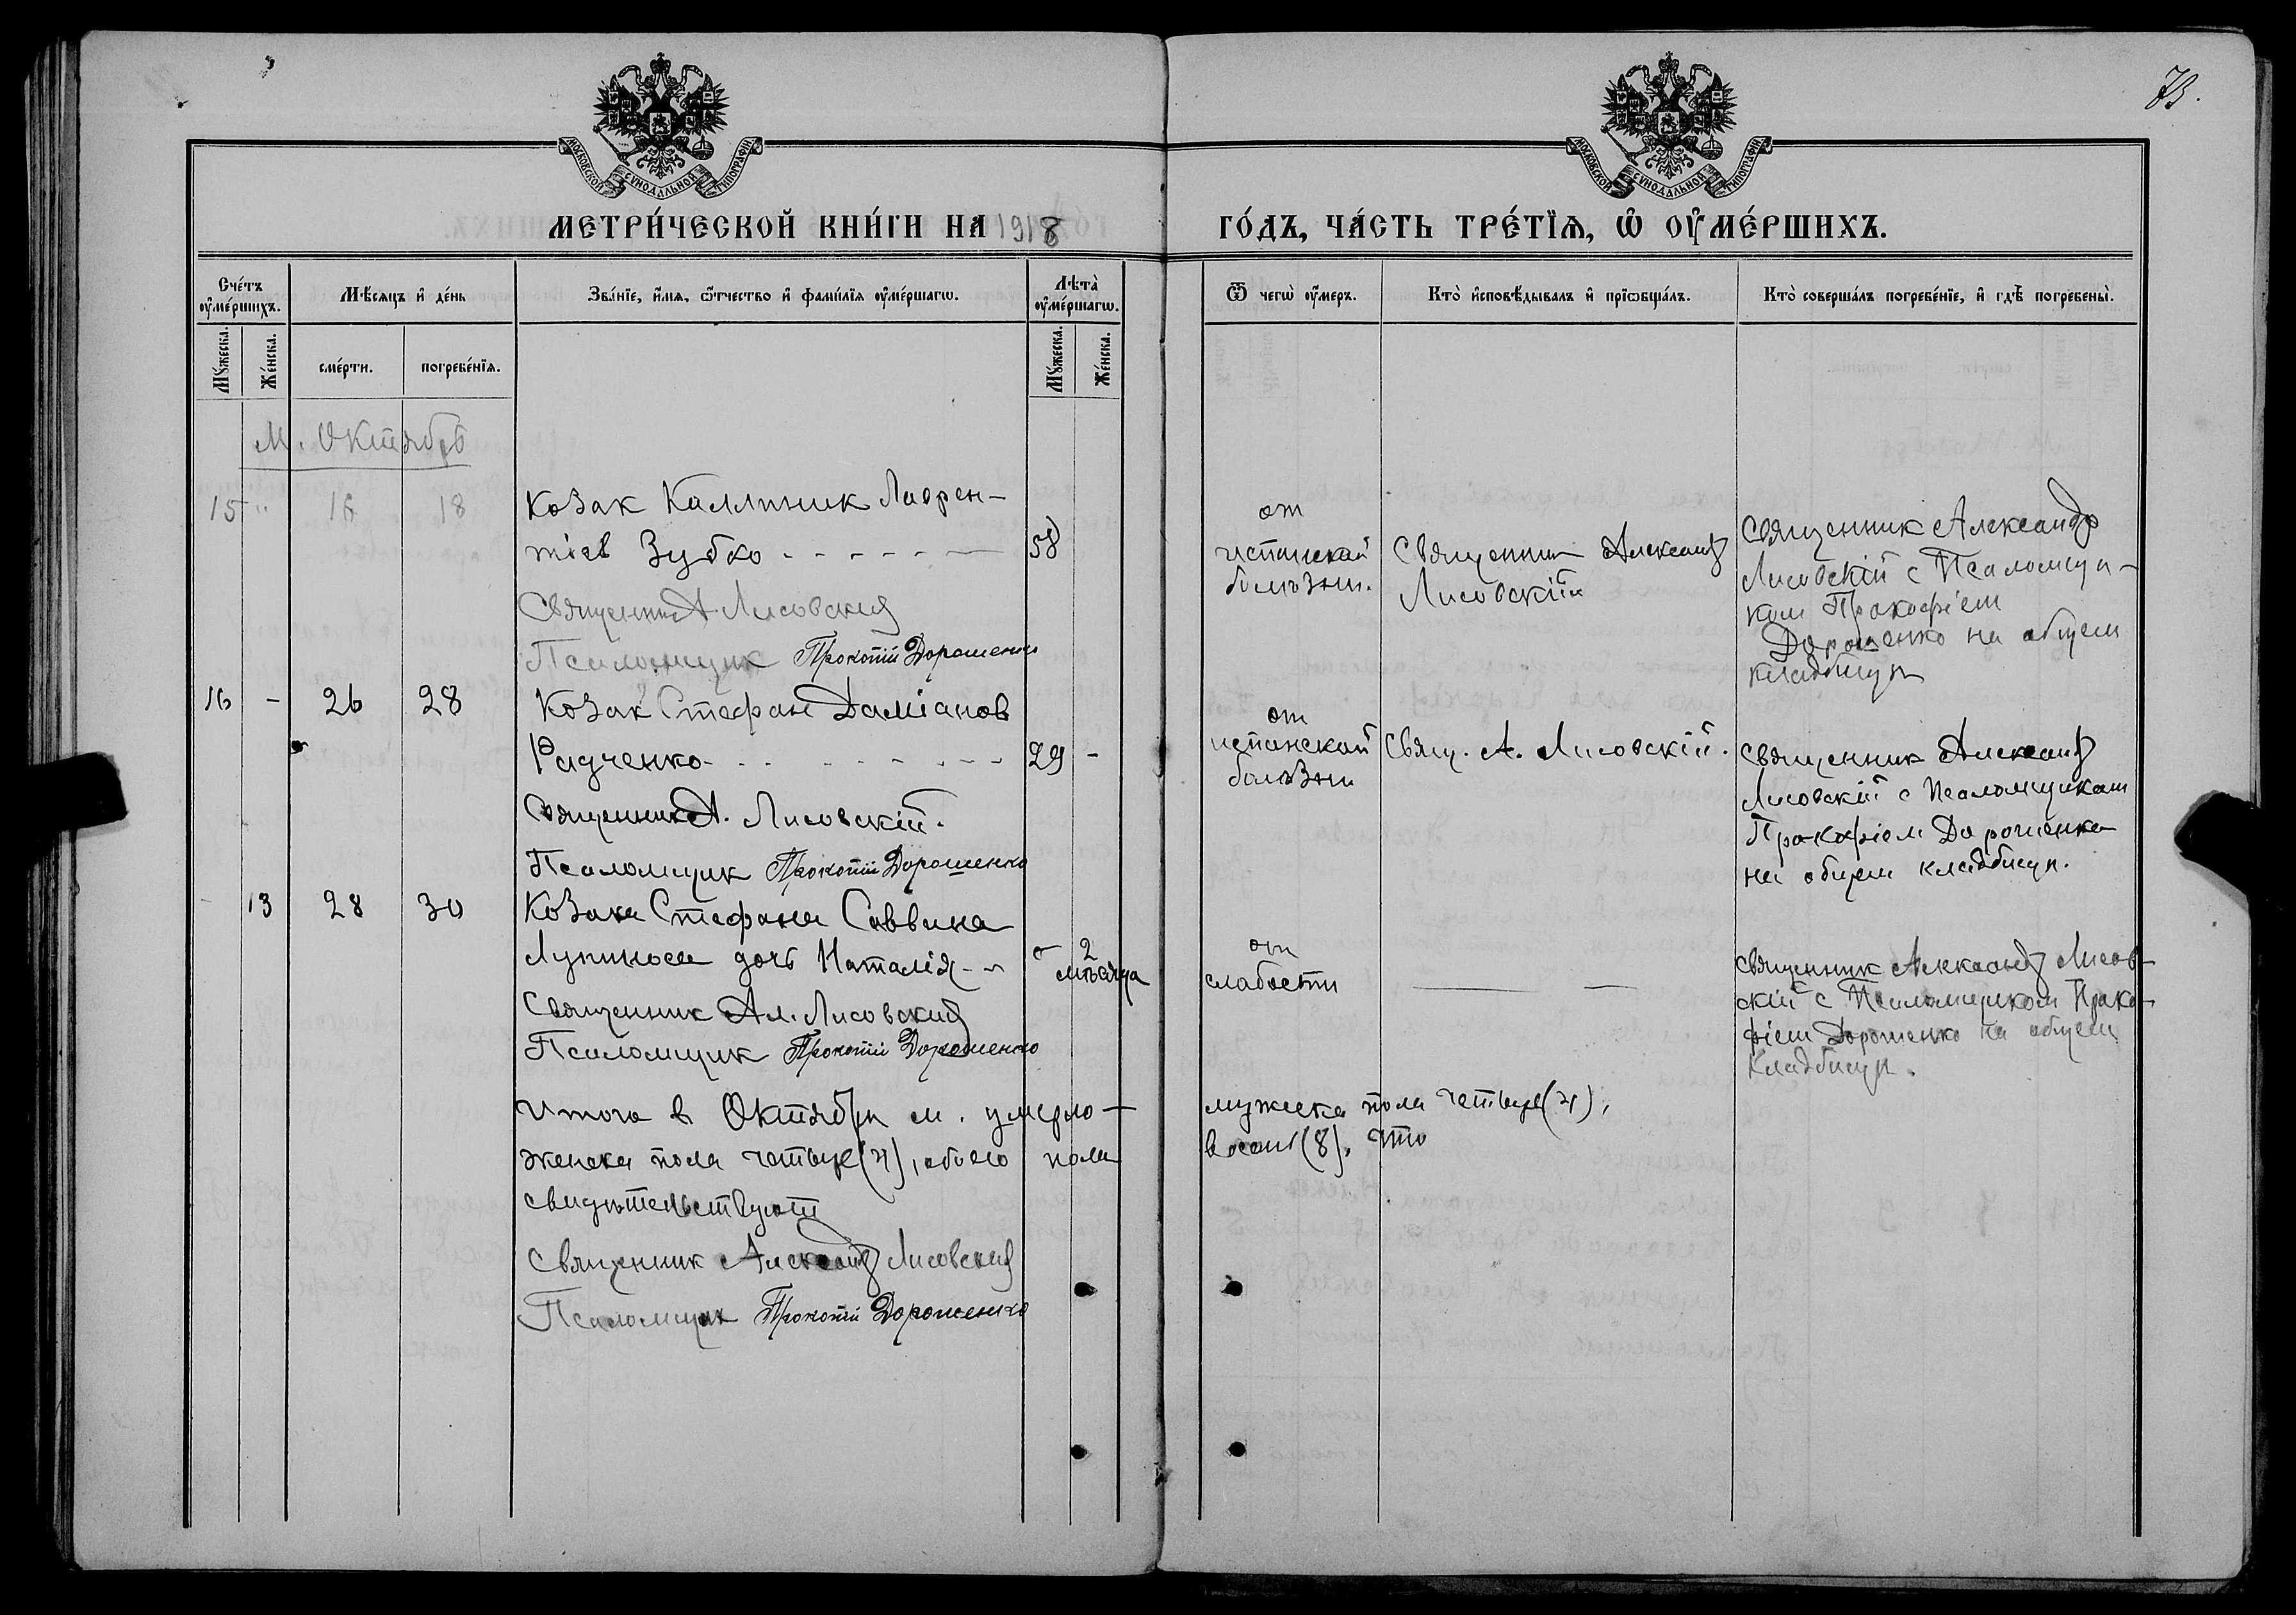 73.
МОСКОВСКОЙ СѴНОДАЛЬНОЙ ТИПОГРАФІИ
МОСКОВСКОЙ СѴНОДАЛЬНОЙ ТИПОГРАФІИ
МЕТРИ́ЧЕСКОЙ КНИ́ГИ НА 1918 ГО́ДЪ, ЧА́СТЬ ТРЕ́ТЇѦ, Ѽ ОУ҆МЕ́РШИХЪ.
Сче́тъ оу҆ме́ршихъ.
Мѣ́сѧцъ и҆ де́нь
Зва́нїе, и҆́мѧ, ѻ҆́тчество и҆ фами́лїѧ оу҆ме́ршагѡ.
Лѣ́та оу҆ме́ршагѡ.
Ѿ чегѡ̀ оу҆́меръ.
Кто̀ и҆сповѣ́дывалъ и҆ прїѡбща́лъ.
Кто̀ соверша́лъ погребе́нїе, и҆ гдѣ̀ погребены̀.
Мꙋ́жеска.
Же́нска.
сме́рти.
погребе́нїѧ.
Мꙋ́жеска.
Же́нска.
М. Октябрь
15 " 16 18 Козак Каллиник Лаврен-
тіев Зубко 58
Священник А Лисовский
Псаломщик Прокопій Дорошенко
от
испанской
болѣзни.
Священник Александр
Лисовскій
Священник Александр
Лисовскій с Псаломщи-
ком Прокофіем
Дорошенко на общем
кладбищѣ
16 - 26 28 Козак Стефан Даміанов
Радченко 29 -
Священник А. Лисовскій.
Псаломщик Прокопій Дорошенко
от
испанской
болѣзни
Свящ. А. Лисовскій.
Священник Александр
Лисовскій с Псаломщиком
Прокофіем Дорошенко
на общем кладбищѣ.
- 13 28 30 Козака Стефана Саввина
Лупиноса дочь Наталія - 2
мѣсяца
Священник Ал. Лисовский
Псаломщик Прокопій Дорошенко
от
слабости
Священник Александр Лисов-
скій с Псаломщиком Проко-
фіем Дорошенко на общем
кладбищѣ.
Итого в Октябрѣ м. умерло - мужеска пола четыре (4),
женска пола четыре (4), обоего пола восемь (8), что
свидѣтельствуют
Священник Александр Лисовский
Псаломщик Прокопій Дорошенко